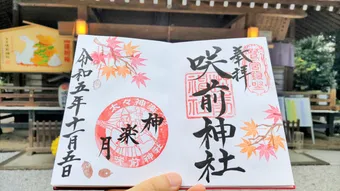 奉拝
咲前神社
神楽月
令和五年十一月五日